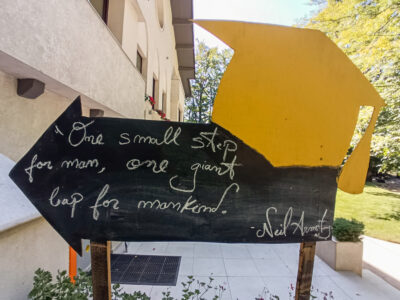 "One small step
for man, one giant
leap for mankind.
-Neil Armstr